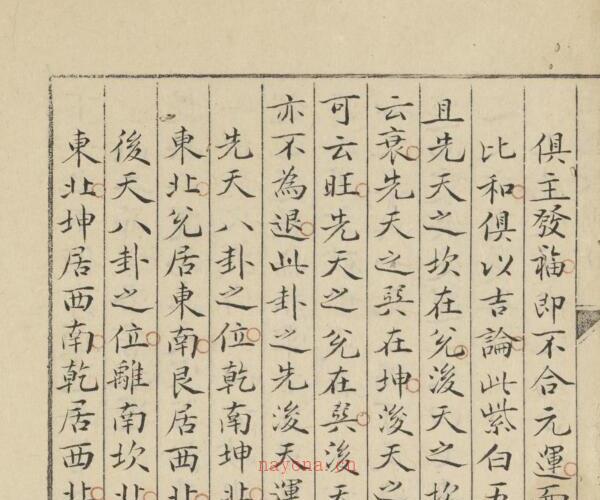 俱主發福即不合元運
比和俱以吉論此紫白五
且先天之坎在兌後天之坎
云衰先天之巽在坤後天之
可云旺先天之兌在巽後天
亦不為退此卦之先後天運
先天八卦之位乾南坤北
東北兌居東南艮居西北
後天八卦之位離南坎北
東北坤居西南乾居西北
nayona.cn